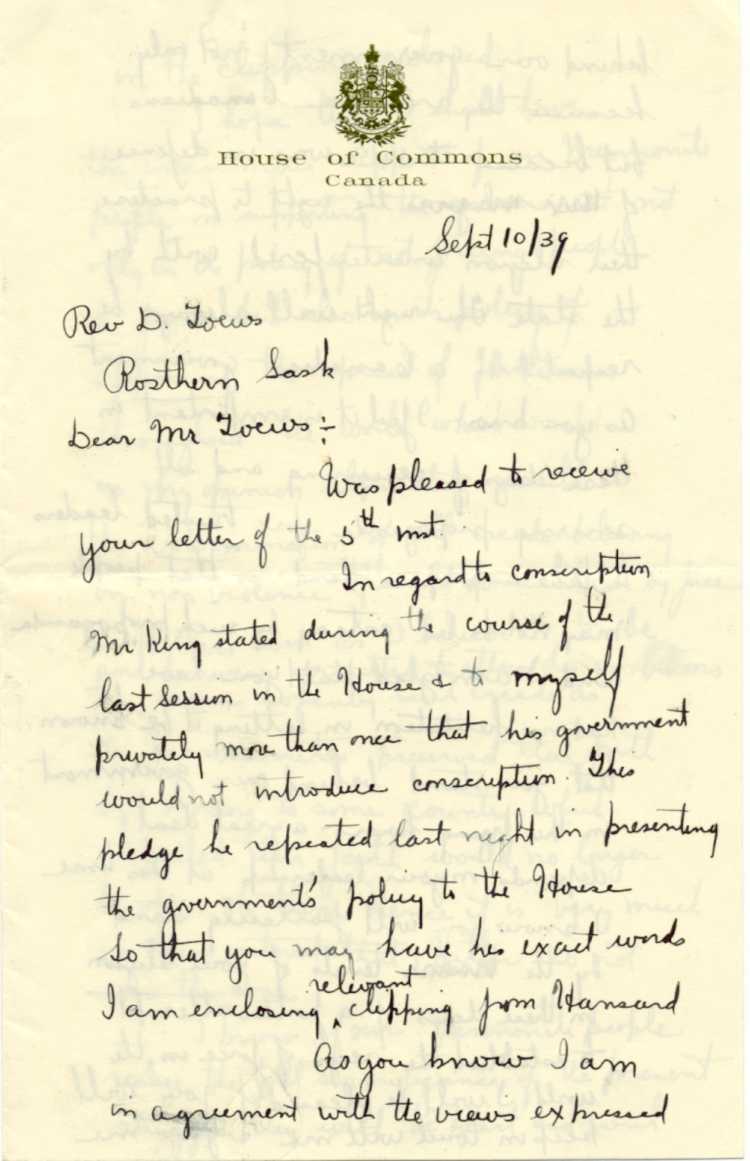 House of Commons
Canada
Sept 10/39
Rev D. Toews
Rosthern Sask
Dear Mr Toews:-
Was pleased to receive
your letter of the 5th inst.
In regard to conscription
Mr King stated during the course of the
last session in the House & to myself
privately more than once that his government
would not introduce conscription. This
pledge he repeated last night in presenting
the government's policy to the House
So that you may have his exact words
relevant
I am enclosing ‸ clipping from Hansard
As you know I am
in agreement with the views expressed